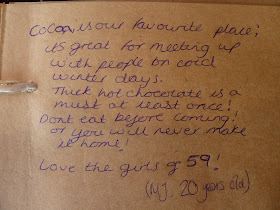 Cocoa, is our favourite place;
its great for meeting up
with people on cold
winter days.
Thick hot chocolate is a
must at least once!
Dont eat before coming!
or you will never make
it home!
Love the girls of 59!
(M.J. 20 years old)